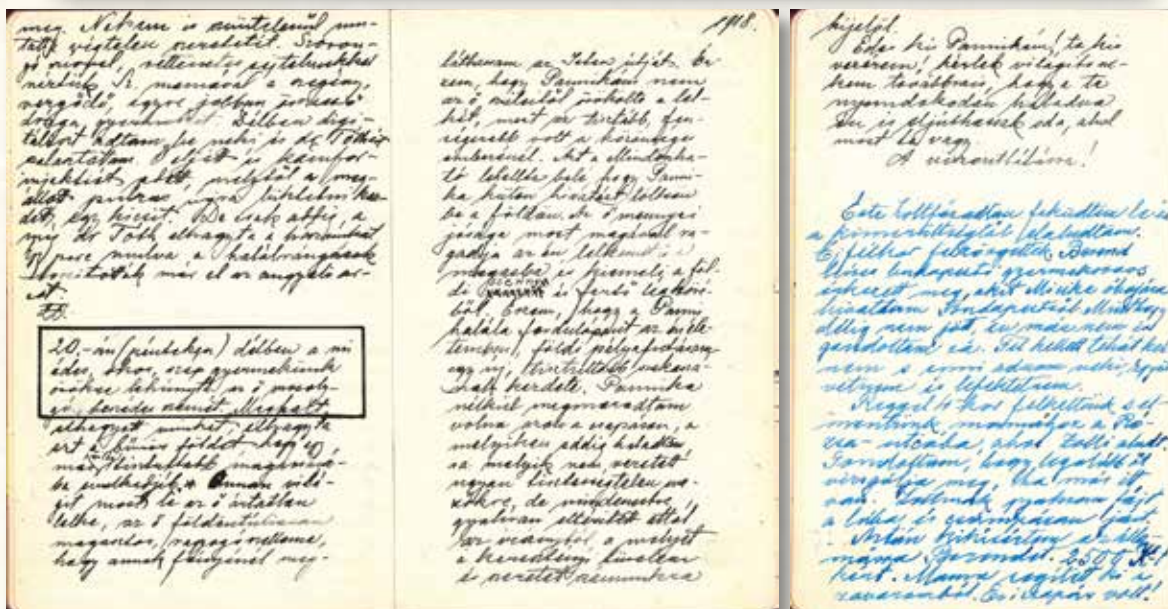 meg. Nekem is szüntelenül mu-
tatja végtelen szeretetét. Szoron-
gó szívvel, rettenetes sejtelmekkel
néztük K. mamával a szegény,
vergődő, egyre jobban
drága gyermeket. Délben digi-
taliszt adtam be neki és dr Tóthot
Eljött és kámfor-
injekciót adott, melytől a meg-
állott pulzus újra lüktetni kez-
dett egy kicsit. De csak addig, a
míg dr Tóth elhagyta a házunkat
perc mulva a halálhangulat
már el az angyali ar-
cát.
20.-án (pénteken) délben a mi
édes, okos, szép gyermekünk
örökre lehunyta az ő mosoly-
gó, beszédes szemét. Meghalt
elhagyott minket, elhagyta
ezt a bűnös földet hogy egy
más, tisztultabb magasság-
ba emelkedjék. Onnan vilá-
gít most le az ő ártatlan
lelke, az ő földöntúli
magasztos, ragyogó
hogy annak fényénél meg-
1918.
láthassam az Isten útját. Ér-
zem, hogy Pannikám nem
az ő szüleitől örökölte a lel-
két, mert az tisztább, fen-
ségesebb volt a közönséges
emberénél. Azt a Mindenha-
tó lehellte bele hogy Panni-
ka külön hivatást töltsön
be a földön. Az ő mennyei
jósága most magával ra-
gadja az én lelkemet is a
magasba és kiemeli a föl-
di piszkos és fertő legköré-
ből. Érzem, hogy a Panni
halála fordulópont az én éle-
temben, földi pályafutásom
egy új, tisztultabb szaka-
szának kezdete. Pannika
nélkül megmaradtam
volna azon a csapáson, a
melyiken addig haladtam
s a melyik nem vezetett
ugyan tisztességtelen me-
zőkre, de mindenesetre,
gyakran eltérített attól
az iránytól a melyet
a keresztény türelem
és szeretet számunkra
kijelöl.
Édes kis Pannikám, te kis
vezérem! kérlek világíts ne-
kem továbbra is, hogy a te
nyomdokodon haladva
én is eljuthassak oda, ahol
most te vagy
A viszontlátásra!
Este holtfáradtan feküdtem le és
a kimerültségtől elaludtam.
Éjfélkor felzörgettek. Berend
híres budapesti gyermekorvos
érkezett meg, akit Micike óhajára
hivattam Budapestről. Mint hogy
délig nem jött, én már nem is
gondoltam rá. Fel kellett tehát kel-
nem s enni adnom neki, ágyat
vetnem és lefektetnem.
Reggel 6 kor felkeltünk s el-
mentünk mamához a Ró-
zsa-utcába, ahol Zolti aludt.
Gondoltam, hogy legalább őt
vizsgálja meg, ha már itt
van. Zoltinak gyakran fájt
a lába, és csámpásan járt.
Aztán kikísértem az állo-
másra Berendet. 2500 K-t
kért. Mama segített ki a
zavaromból. Ez is csapás volt!